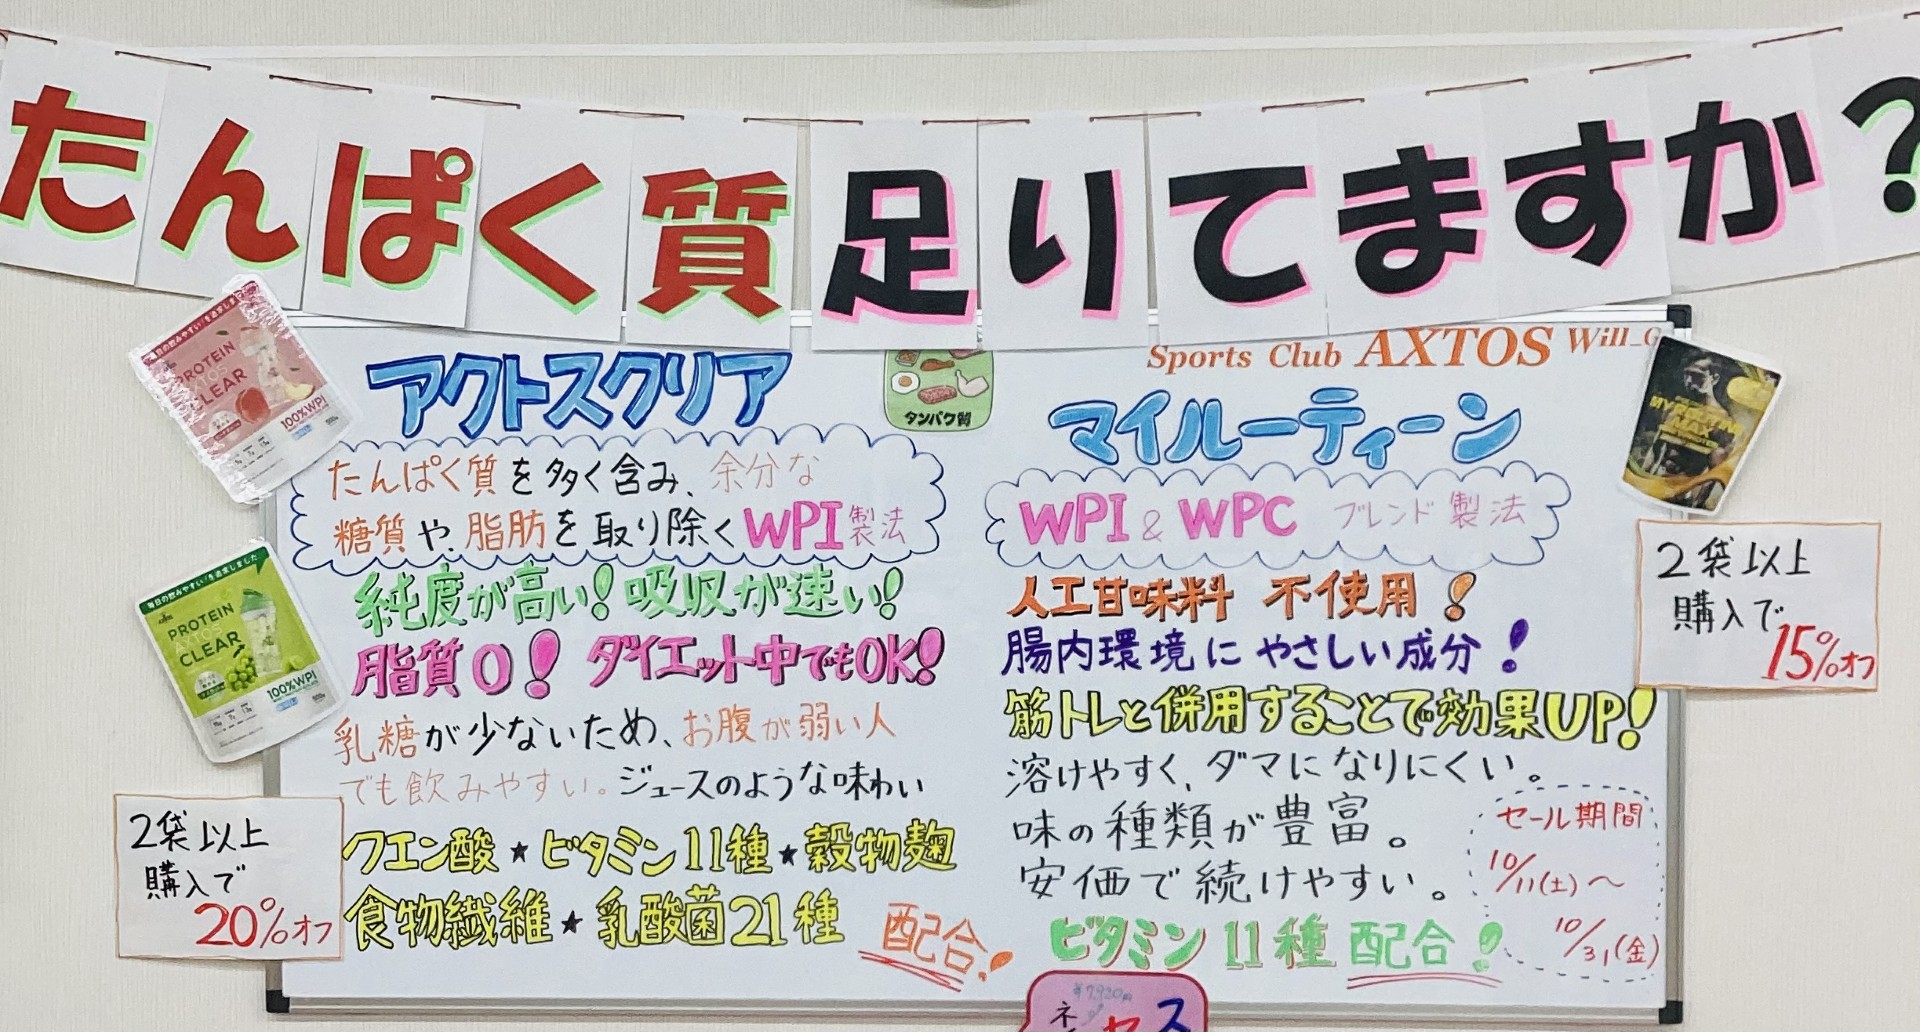 たんぱく質足りてますか?
Sports Club AXTOS Will_G
アクトスクリア
たんぱく質を多く含み、余分な
糖質や、脂肪を取り除くWPI製法
純度が高い!吸収が速い!
脂質0! ダイエット中でもOK!
乳糖が少ないため、お腹が弱い人
でも飲みやすい。ジュースのような味わい
クエン酸★ビタミン11種★穀物麹
食物繊維★乳酸菌21種
配合!
タンパク質
マイルーティーン
WPI & WPC ブレンド製法
人工甘味料 不使用!
腸内環境にやさしい成分!
筋トレと併用することで効果UP!
溶けやすく、ダマになりにくい。
味の種類が豊富。
安価で続けやすい。
ビタミン11種配合!
セール期間
10/11(土)〜
10/31(金)
2袋以上
購入で
15%オフ
2袋以上
購入で
20%オフ
毎日の飲みやすい"を追求しました
PROTEIN
CLEAR
100%WPI
PROTEIN
CLEAR
100%WPI
¥7,920円